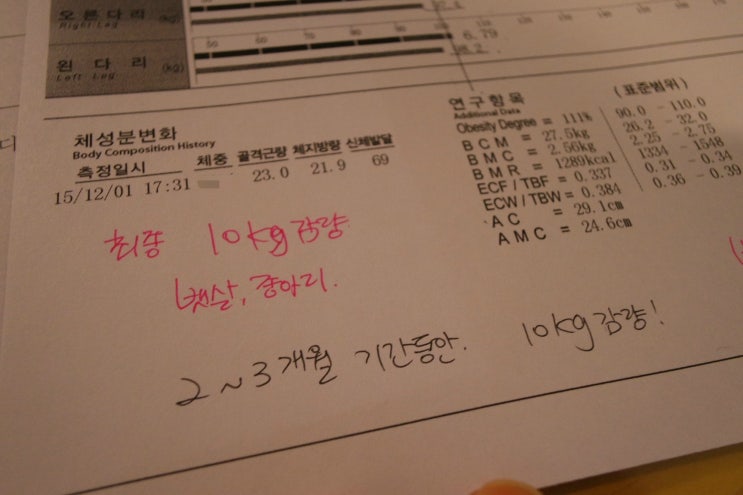 오른다리 (kg)
Right Leg
6.79
왼다리 (kg)
Left Leg
98.2
체성분변화
Body Composition History
측정일시 체중 골격근량 체지방량 신체발달
15/12/01 17:31 23.0 21.9 69
연구항목 (표준범위)
Additional Data
Obesity Degree = 111% 90.0 - 110.0
BCM = 27.5kg 26.2 - 32.0
BMC = 2.56kg 2.25 - 2.75
BMR = 1289kcal 1334 - 1548
ECF / TBF = 0.337 0.31 - 0.34
ECW / TBW = 0.384 0.36 - 0.39
AC = 29.1cm
AMC = 24.6cm
최종 10kg 감량
뱃살, 종아리.
2~3개월 기간동안. 10kg 감량!